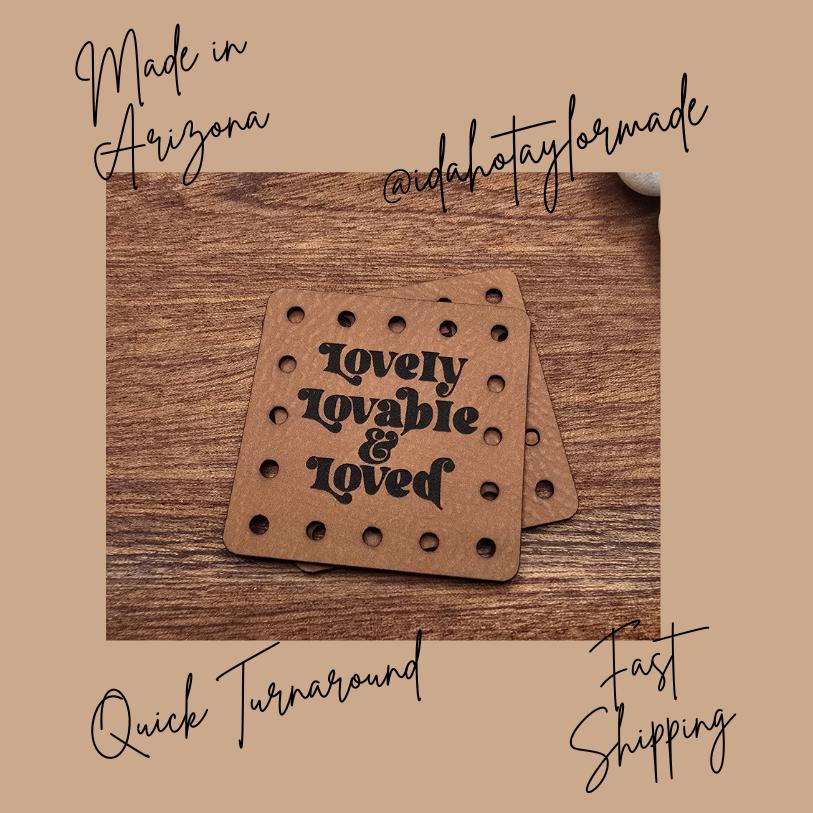 Made in
Arizona
@idahotaylormade
Lovely
Lovable
&
Loved
Quick Turnaround
Fast
Shipping